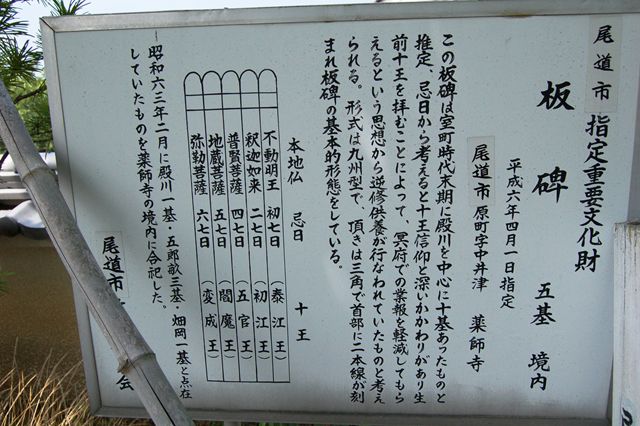 尾道市 指定重要文化財
板碑 五基 境内
平成六年四月一日指定
尾道市 原町字中井津 薬師寺
この板碑は室町時代末期に殿川を中心に十基あったものと
推定、忌日から考えると十王信仰と深いかかわりがあり生
前十王を拝むことによって、冥府での業報を軽減してもら
えるという思想から逆修供養が行なわれていたものと考え
られる。形式は九州型で、頂きは三角で首部に二本線が刻
まれ板碑の基本的形態をしている。
本地仏 忌日 十王
不動明王 初七日 (泰江王)
釈迦如来 二七日 (初江王)
普賢菩薩 四七日 (五官王)
地蔵菩薩 五七日 (閻魔王)
弥勒菩薩 六七日 (変成王)
昭和六三年二月に殿川一基・五郎畝三基・畑岡一基と点在
していたものを薬師寺の境内に合祀した。
尾道市 会